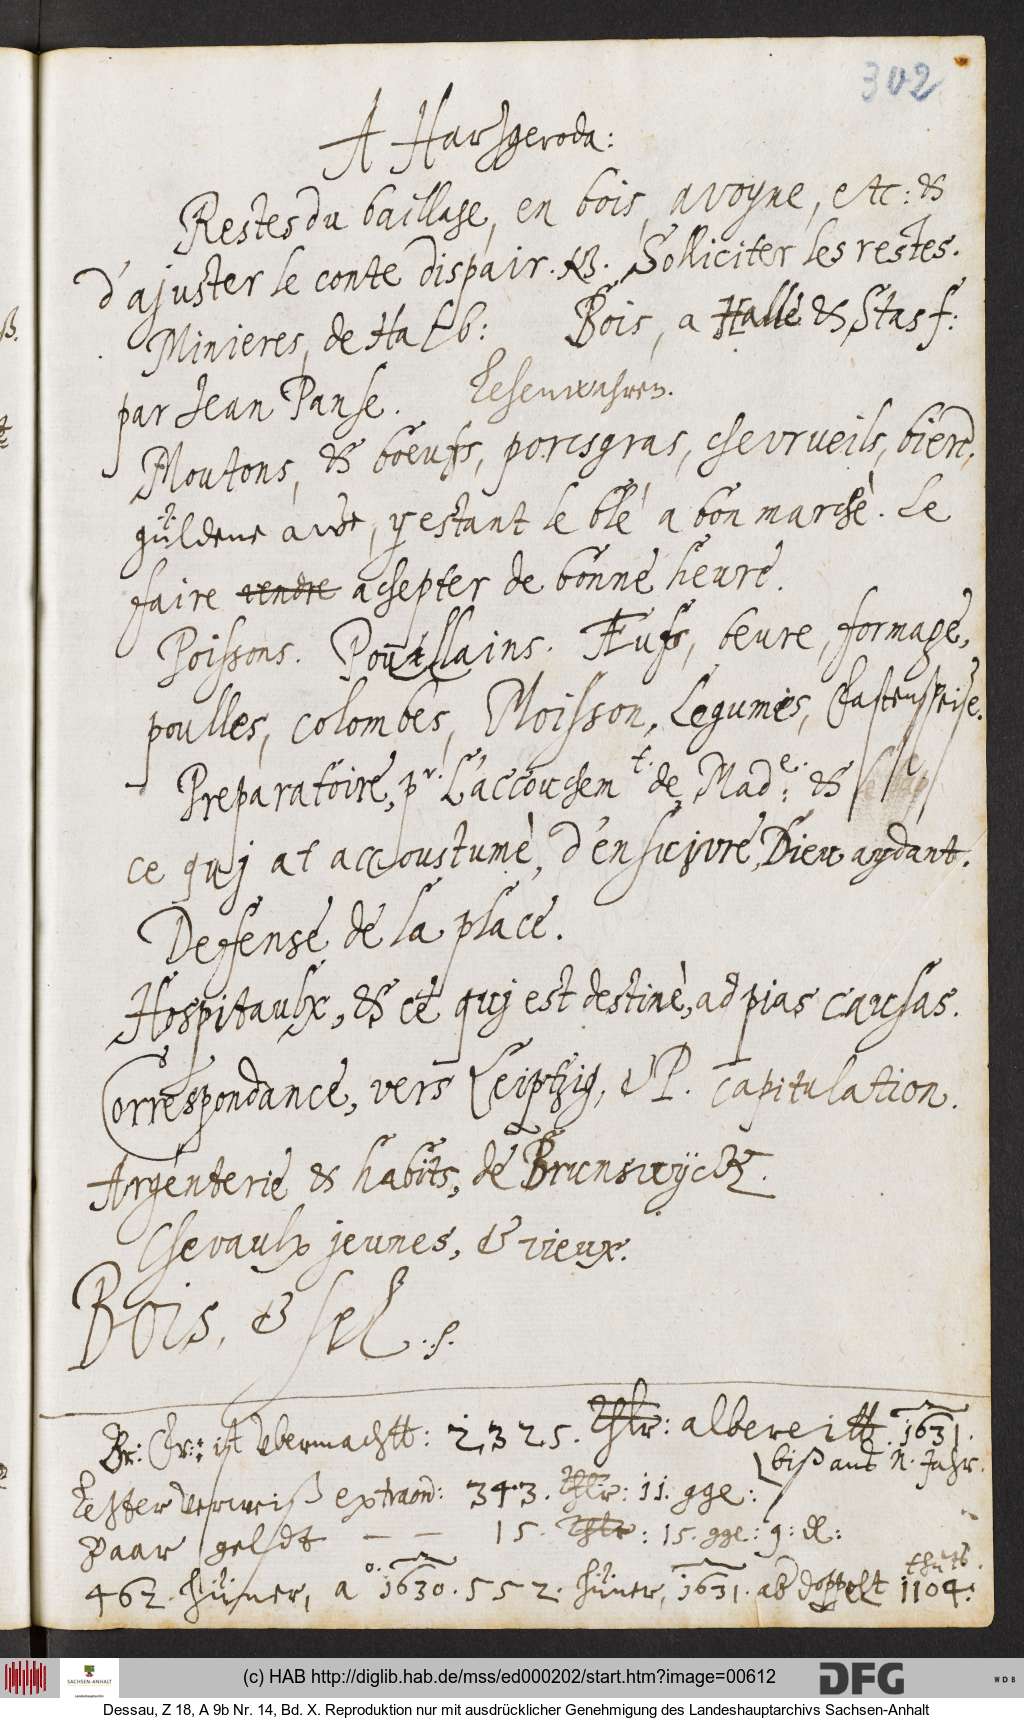 302
A Hartzgeroda:
Restes du baillage, en bois, avoyne, etc: &
d'ajuster le conte dispair. NB. Solliciter les restes.
Minieres, de Halb: Bois, a Halle & Stasf:
par Jean Panse. Eisenwahren.
Moutons, & boeufs, porcs gras, chevrueils, bierd,
güldene awe, y estant le blè a bon marchè. Le
faire vendre achepter de bonne heure.
Poissons. Poullains. Œufs, beure, formage,
poulles, colombes, Moisson, Legumes, Fastenspeise.
Preparatoire, pr. L'accouchemt. de Made: &
ce quj at accoustumè, d'ensuivre, Dieu aydant.
Defense de la place.
Hospitaulx, & ce quj est destinè, ad pias causas.
Correspondance, vers Leiptzig, & P. capitulation.
Argenterie & habits, de Brunswyck.
Chevaulx jeunes, & vieux.
Bois, & sel.
Br: Fr: ist vbermachtt: 2325. Thlr: albereitt. 1631.
biß aufs N. Jahr.
Eester verweiß extraord: 343. Thlr: 11. gge:
paar geldt — — 15. Thlr: 15. gge: 9: d:
462. hüner, ao. 1630. 552. hüner, 1631. ab doppelt 1104.
thuts.
(c) HAB http://diglib.hab.de/mss/ed000202/start.htm?image=00612
SACHSEN-ANHALT
DFG
WDB
Dessau, Z 18, A 9b Nr. 14, Bd. X. Reproduktion nur mit ausdrücklicher Genehmigung des Landeshauptarchivs Sachsen-Anhalt